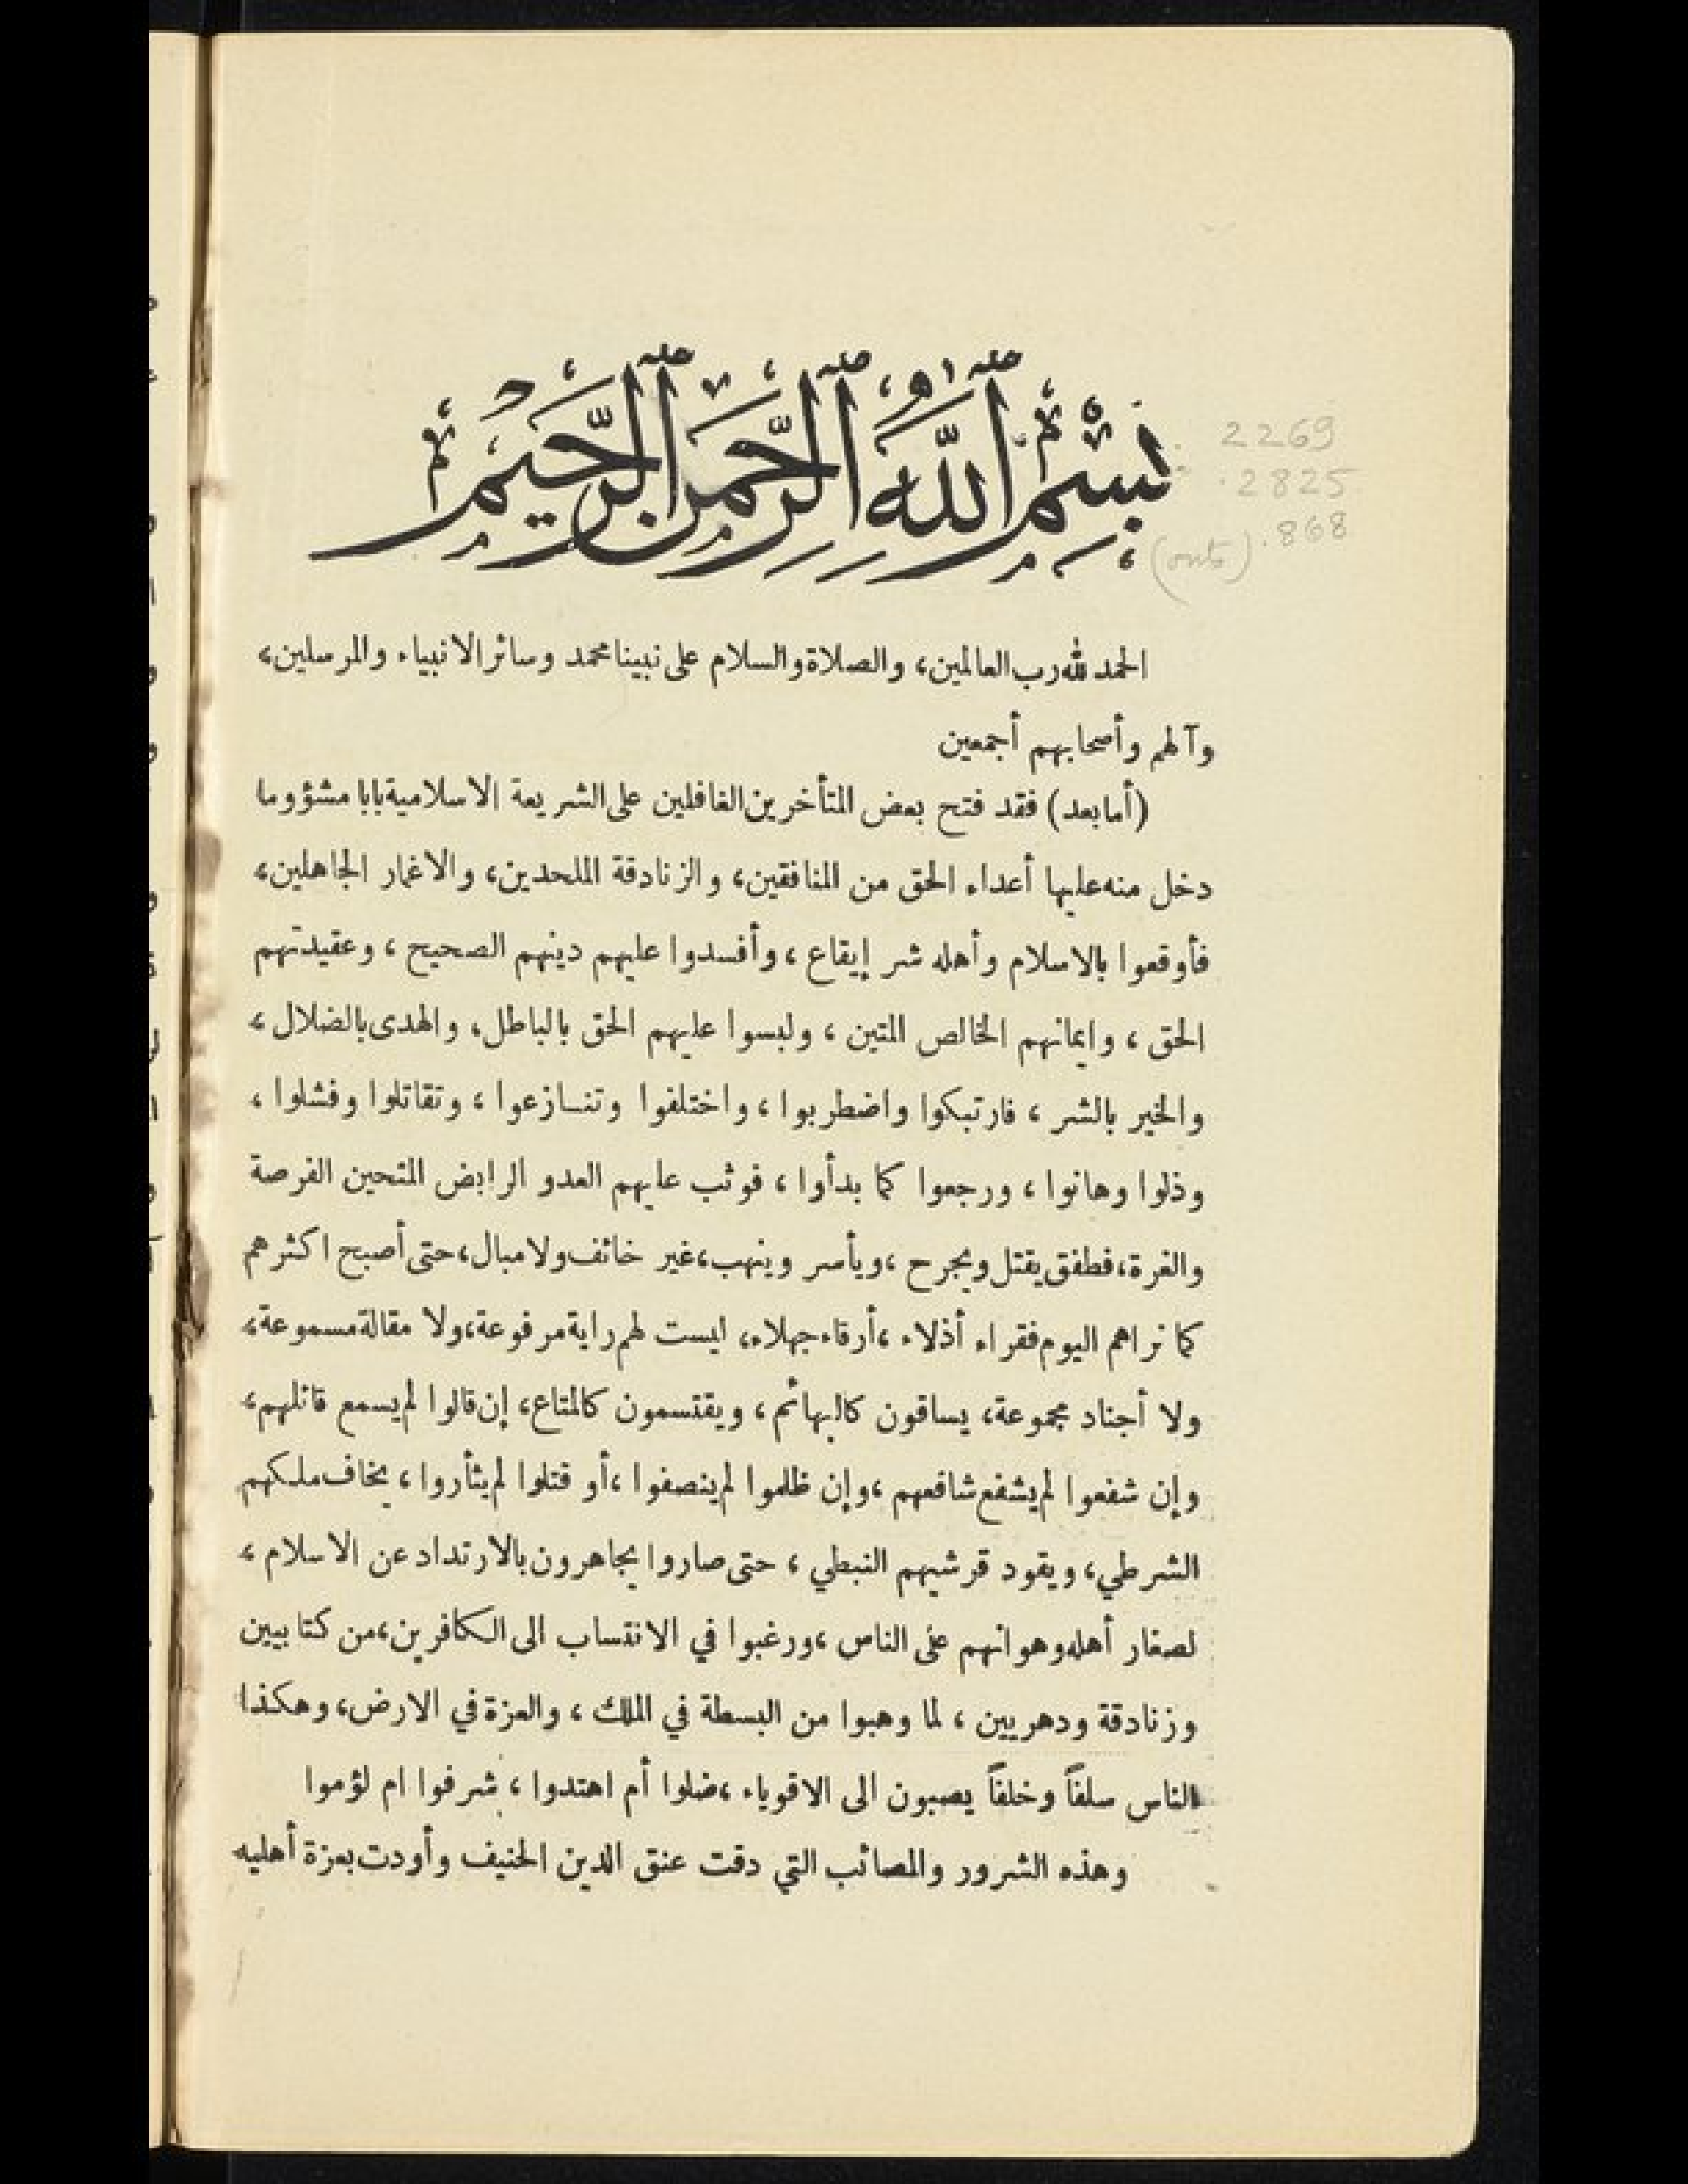 بِسْمِ ٱللَّهِ ٱلرَّحْمَٰنِ ٱلرَّحِيمِ
2269
.2825
.868
الحمد لله رب العالمين، والصلاة والسلام على نبينا محمد وسائر الانبياء والمرسلين،
وآلهم وأصحابهم أجمعين
(أما بعد) فقد فتح بعض المتأخرين الغافلين على الشريعة الاسلامية بابا مشؤوما
دخل منه عليها أعداء الحق من المنافقين، والزنادقة الملحدين، والاغمار الجاهلين،
فأوقعوا بالاسلام وأهله شر إيقاع، وأفسدوا عليهم دينهم الصحيح، وعقيدتهم
الحق، وايمانهم الخالص المتين، ولبسوا عليهم الحق بالباطل، والهدى بالضلال،
والخير بالشر، فارتبكوا واضطربوا، واختلفوا وتنازعوا، وتقاتلوا وفشلوا،
وذلوا وهانوا، ورجعوا كما بدأوا، فوثب عليهم العدو الرابض المتحين الفرصة
والغرة، فطفق يقتل ويجرح، ويأسر وينهب، غير خائف ولا مبال، حتى أصبح اكثرهم
كما نراهم اليوم فقراء أذلاء، أرقاء جهلاء، ليست لهم راية مرفوعة، ولا مقالة مسموعة،
ولا أجناد مجموعة، يساقون كالبهائم، ويقتسمون كالمتاع، إن قالوا لم يسمع قائلهم،
وإن شفعوا لم يشفع شافعهم، وإن ظلموا لم ينصفوا، أو قتلوا لم يثأروا، يخاف ملكهم
الشرطي، ويقود قرشيهم النبطي، حتى صاروا يجاهرون بالارتداد عن الاسلام،
لصغار أهله وهوانهم على الناس، ورغبوا في الانتساب الى الكافرين، من كتابيين
وزنادقة ودهريين، لما وهبوا من البسطة في الملك، والعزة في الارض، وهكذا
الناس سلفاً وخلفاً يصبون الى الاقوياء، ضلوا أم اهتدوا، شرفوا ام لؤموا
وهذه الشرور والمصائب التي دقت عنق الدين الحنيف وأودت بعزة أهليه